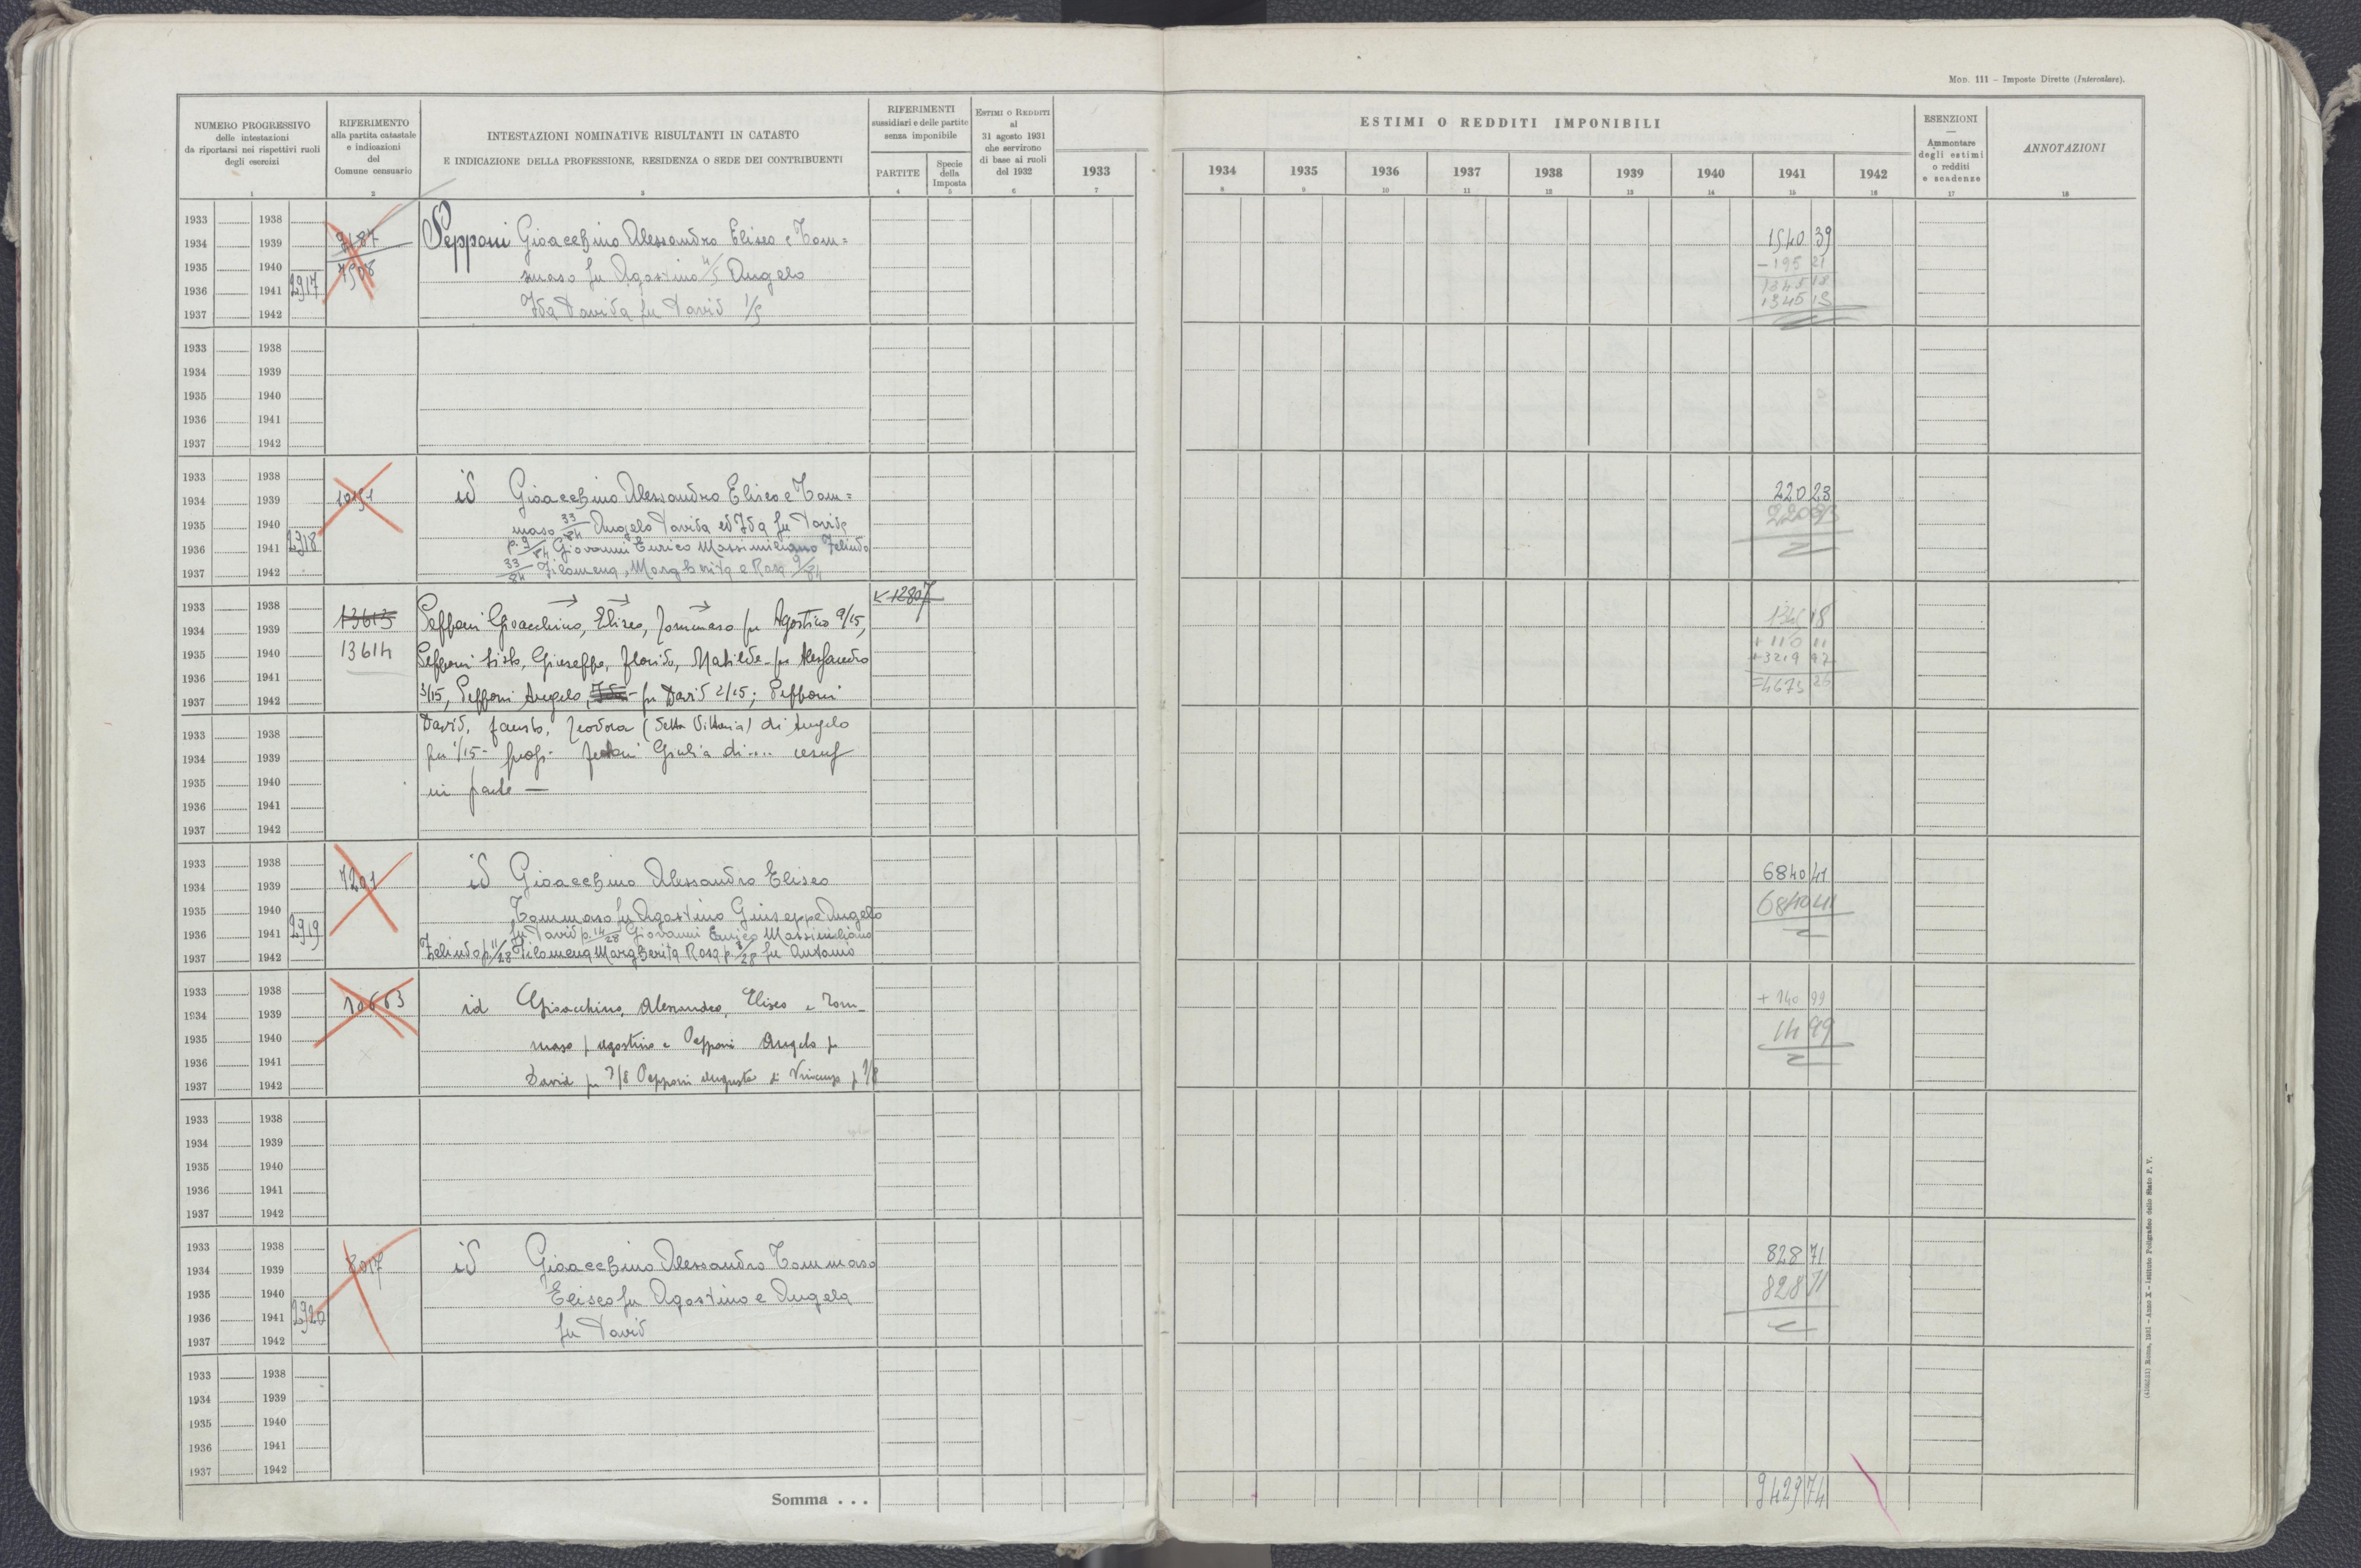 Mod. 111 – Imposte Dirette (Intercalare).
NUMERO PROGRESSIVO
delle intestazioni
da riportarsi nei rispettivi ruoli
degli esercizi
1
RIFERIMENTO
alla partita catastale
e indicazioni
del
Comune censuario
2
INTESTAZIONI NOMINATIVE RISULTANTI IN CATASTO
E INDICAZIONE DELLA PROFESSIONE, RESIDENZA O SEDE DEI CONTRIBUENTI
3
RIFERIMENTI
sussidiari e delle partite
senza imponibile
PARTITE
4
Specie
della
Imposta
5
Estimi o Redditi
al
31 agosto 1931
che servirono
di base ai ruoli
del 1932
6
1933
7
ESTIMI O REDDITI IMPONIBILI
1934
8
1935
9
1936
10
1937
11
1938
12
1939
13
1940
14
1941
15
1942
16
ESENZIONI
—
Ammontare
degli estimi
o redditi
e scadenze
17
ANNOTAZIONI
18
1933 1938
1934 1939
1935 1940
1936 1941 2917
1937 1942
2187
Pepponi Gioacchino Alessandro Eliseo e Tom=
maso fu Agostino 4/5 Angelo
Ida Davida fu David 1/5
1540 39
– 195 21
1345 18
1345 18
1933 1938
1934 1939
1935 1940
1936 1941
1937 1942
1933 1938
1934 1939
1935 1940
1936 1941 2918
1937 1942
id Gioacchino Alessandro Eliseo e Tom=
maso 33/84 Angelo Davida ed Ida fu David
p. 9/84 Giovanni Enrico Massimiliano Zelindo
33/84 Filomena, Margherita e Rosa 9/84
220 23
1933 1938
1934 1939
1935 1940
1936 1941
1937 1942
13613
13614
Pepponi Gioacchino, Eliseo, Tommaso fu Agostino 9/15,
Pepponi Sisto, Giuseppe, Florido, Matilde fu Alessandro
3/15, Pepponi Angelo, Ida fu David 2/15; Pepponi
12807
+ 110 11
+ 3219 97
= 4675 26
David, Fausto, Teodora (detta Vittoria) di Angelo
per 1/15 - Giulia di....
in parte —
1933 1938
1934 1939
1935 1940
1936 1941
1937 1942
1933 1938
1934 1939
1935 1940
1936 1941 2919
1937 1942
7201
id Gioacchino Alessandro Eliseo
Tommaso fu Agostino Giuseppe Angelo
fu David p. 14/28 Giovanni Enrico Massimiliano
Zelindo p. 11/28 Filomena Margherita Rosa p. 3/28 fu Antonio
6840 41
6840 41
1933 1938
1934 1939
1935 1940
1936 1941
1937 1942
10663
id Gioacchino, Alessandro, Eliseo e Tom–
maso f Agostino e Pepponi Angelo fu
David per 7/8 Pepponi Augusta di Vincenzo p 1/8
+ 140 99
14 99
1933 1938
1934 1939
1935 1940
1936 1941
1937 1942
1933 1938
1934 1939
1935 1940
1936 1941 2920
1937 1942
8017
id Gioacchino Alessandro Tommaso
Eliseo fu Agostino e Angela
fu David
828 71
828 71
1933 1938
1934 1939
1935 1940
1936 1941
1937 1942
Somma . . .
9429 74
(4106251) Roma, 1931 – Anno X – Istituto Poligrafico dello Stato P. V.